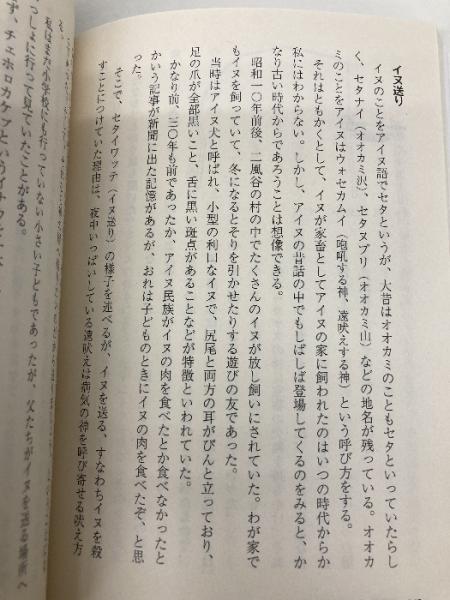 イヌ送り
イヌのことをアイヌ語でセタというが、大昔はオオカミのこともセタといっていたらし
く、セタナイ(オオカミ沢)、セタヌプリ(オオカミ山)などの地名が残っている。オオカ
ミのことをアイヌはウォセカムイ(咆吼する神、遠吠えする神)という呼び方をする。
それはともかくとして、イヌが家畜としてアイヌの家に飼われたのはいつの時代からか
私にはわからない。しかし、アイヌの昔話の中でもしばしば登場してくるのをみると、か
なり古い時代からであろうことは想像できる。
昭和一〇年前後、二風谷の村の中でたくさんのイヌが放し飼いにされていた。わが家で
もイヌを飼っていて、冬になるとそりを引かせたりする遊びの友であった。
当時はアイヌ犬と呼ばれ、小型の利口なイヌで、尻尾と両方の耳がぴんと立っており、
足の爪が全部黒いこと、舌に黒い斑点があることなどが特徴といわれていた。
かなり前、三〇年も前であったか、アイヌ民族がイヌの肉を食べたとか食べなかったと
かいう記事が新聞に出た記憶があるが、おれは子どものときにイヌの肉を食べたぞ、と思
った。
そこで、セタイワッテ(イヌ送り)の様子を述べるが、イヌを送る、すなわちイヌを殺
すことにつけていた理由は、夜中いっぱいしている遠吠えは病気の神を呼び寄せる吠え方
私はまだ小学校にも行っていない小さい子どもであったが、父たちがイヌを送る場所へ
っしょに行って見ていたことがある。
ず、チェホロカケプというイナウを